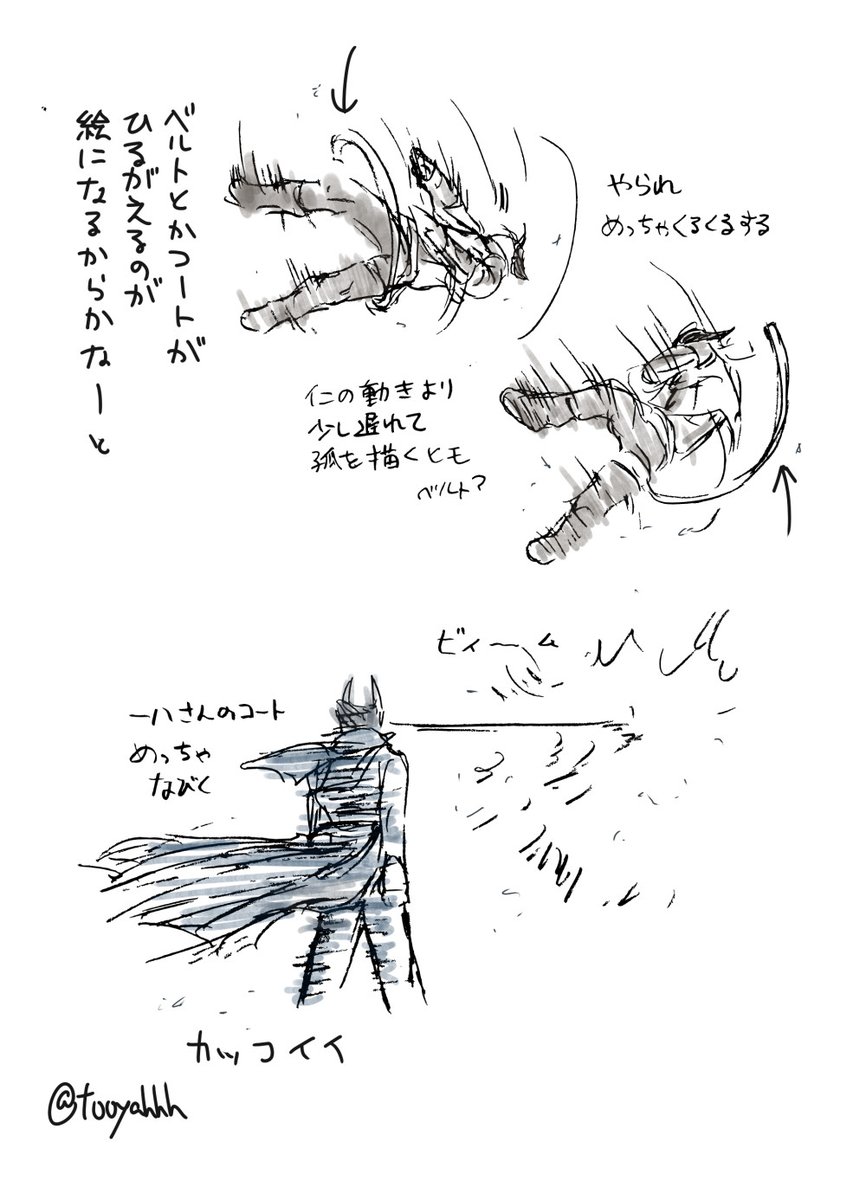 ベルトとかコートが
ひるがえるのが
絵になるからかなーと
やられ
めっちゃくるくるする
仁の動きより
少し遅れて
弧を描くヒモ
ベルト?
ビィーム
一八さんのコート
めっちゃ
なびく
カッコイイ
@tooyahhh